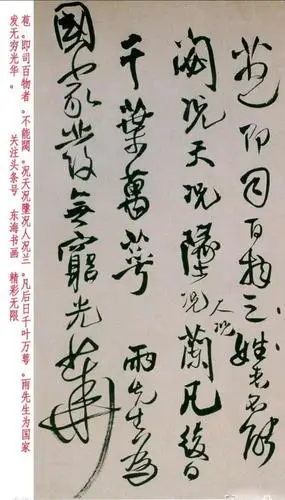 苞即司百物之者不能
况天况墜况人况蘭凡後日
千葉萬萼雨先生為
國家發無窮光華
苞。即司百物者。不能。况天况墜况人况兰。凡后日千叶万萼。雨先生为国家
发无穷光华。 关注头条号 东海书画 精彩无限